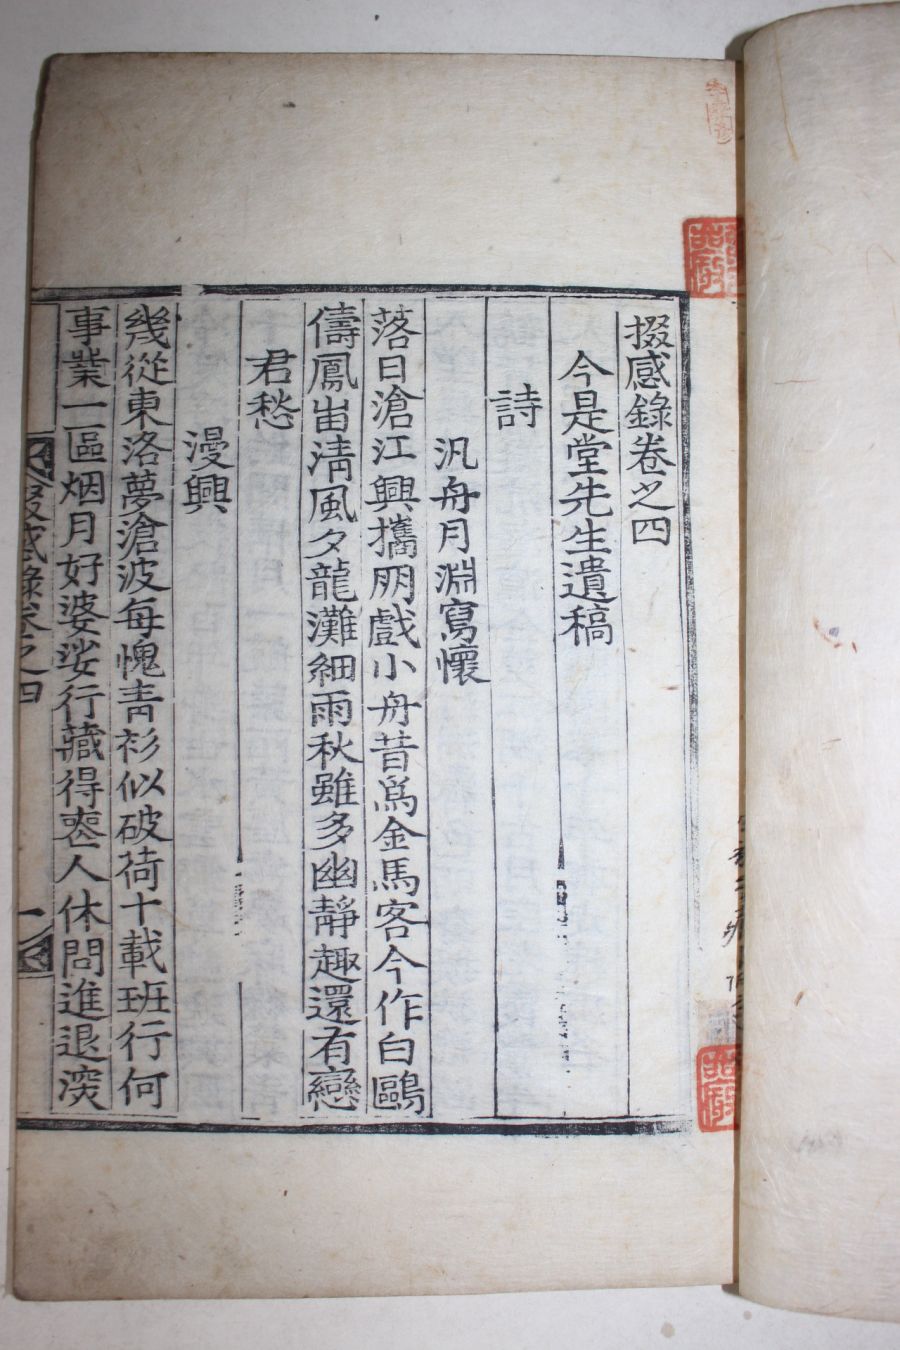 掇感錄卷之四
今是堂先生遺稿
詩
汎舟月淵寫懷
落日滄江興攜朋戲小舟昔爲金馬客今作白鷗
儔鳳峀淸風夕龍灘細雨秋雖多幽靜趣還有戀
君愁
漫興
幾從東洛夢滄波每愧靑衫似破荷十載班行何
事業一區烟月好婆娑行藏得喪人休問進退滾
掇感錄卷之四
一